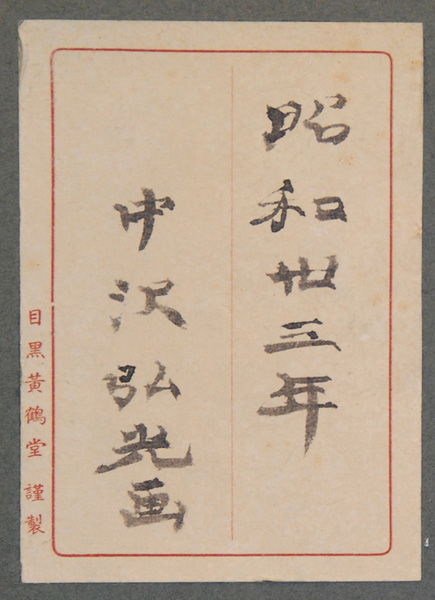 昭和卅三年
中沢弘光画
目黒黃鶴堂謹製